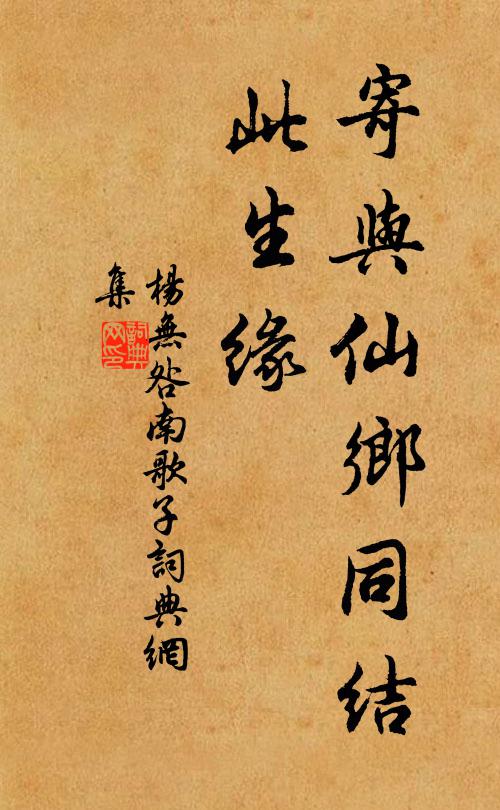 寄與仙鄉同結
此生緣
楊無咎南歌子詞典網
集
詞典
网印